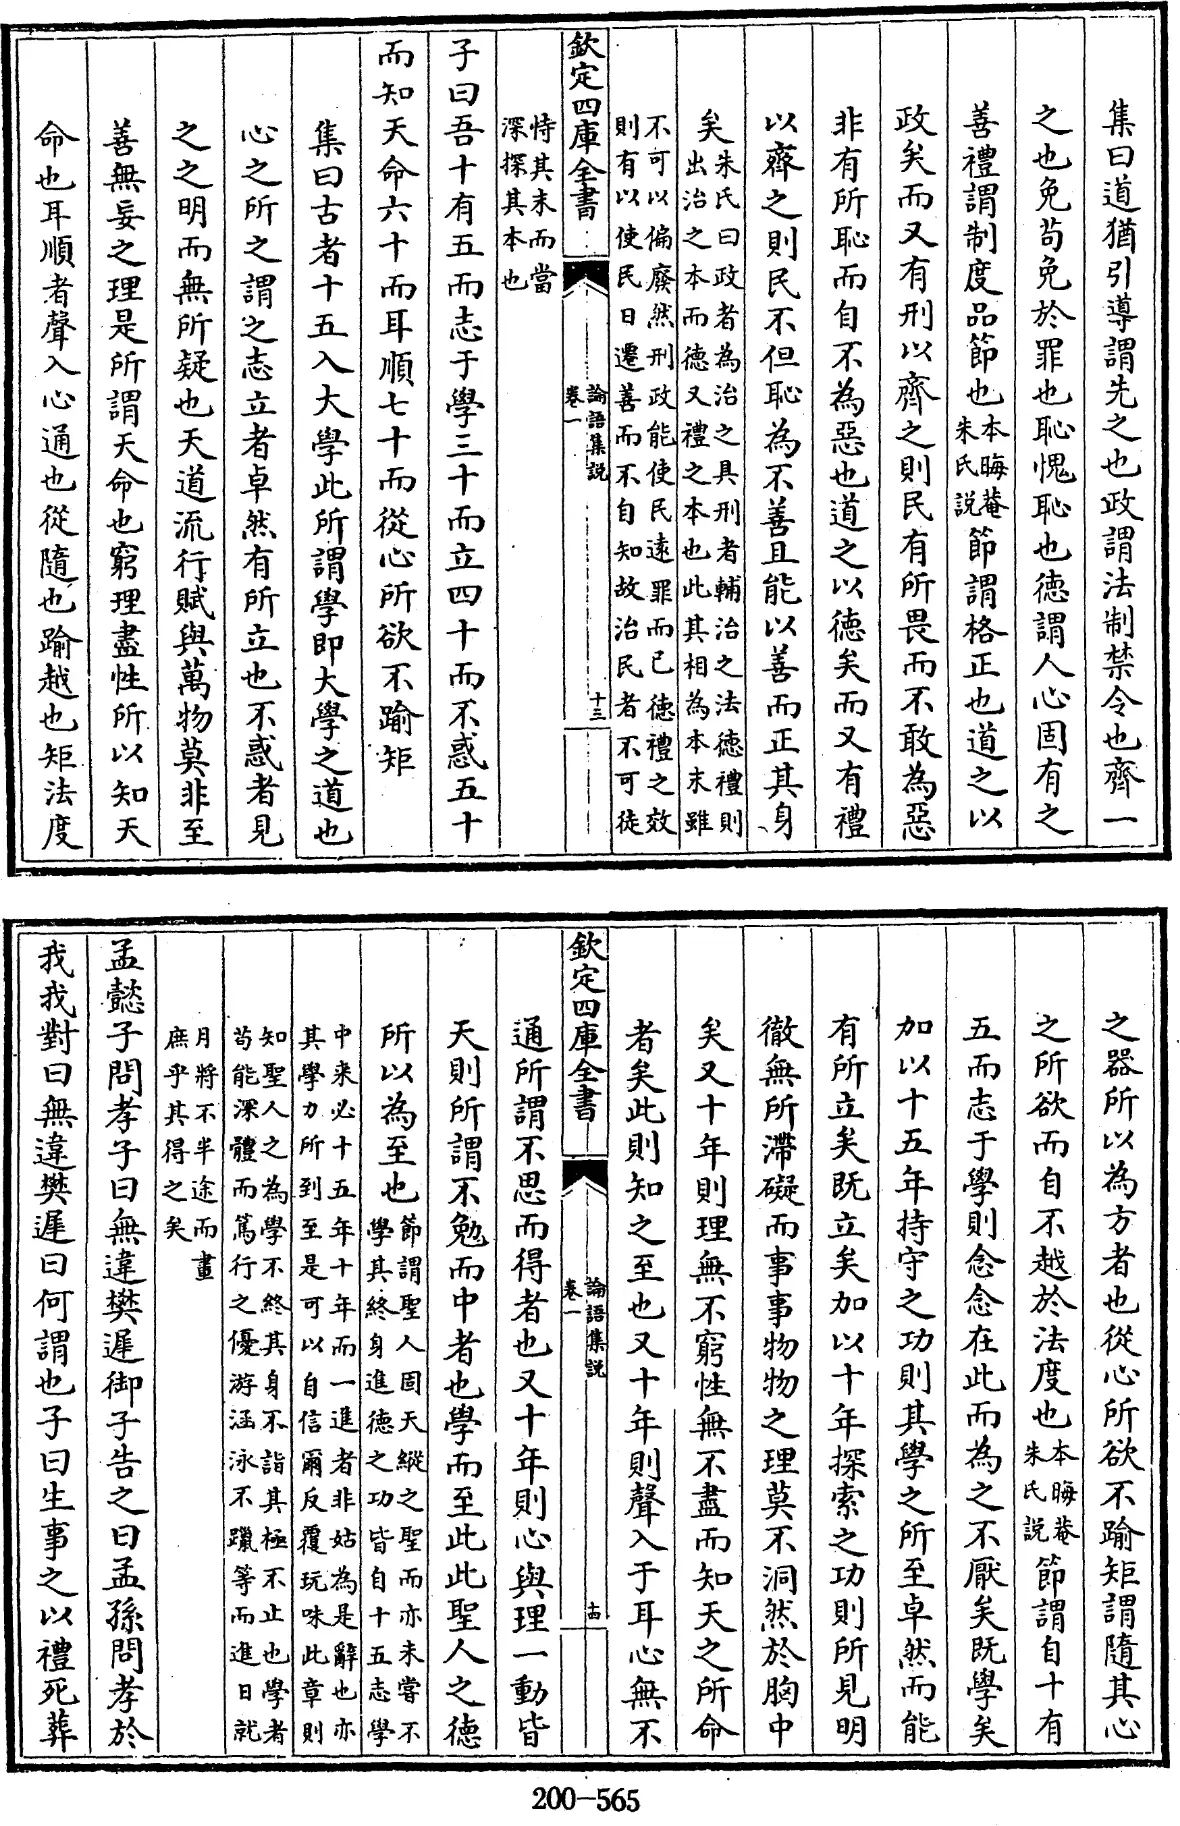 集曰道猶引導謂先之也政謂法制禁令也齊一
之也免苟免於罪也恥愧恥也徳謂人心固有之
善禮謂制度品節也本晦菴朱氏説節謂格正也道之以
政矣而又有刑以齊之則民有所畏而不敢為惡
非有所恥而自不為惡也道之以徳矣而又有禮
以齊之則民不但恥為不善且能以善而正其身
矣朱氏曰政者為治之具刑者輔治之法徳禮則
出治之本而徳又禮之本也此其相為本末雖
不可以偏廢然刑政能使民逺罪而已徳禮之效
則有以使民日遷善而不自知故治民者不可徒
欽定四庫全書
論語集説
卷一
十三
恃其末而當
深探其本也
子曰吾十有五而志于學三十而立四十而不惑五十
而知天命六十而耳順七十而從心所欲不踰矩
集曰古者十五入大學此所謂學即大學之道也
心之所之謂之志立者卓然有所立也不惑者見
之之明而無所疑也天道流行賦與萬物莫非至
善無妄之理是所謂天命也窮理盡性所以知天
命也耳順者聲入心通也從隨也踰越也矩法度
之器所以為方者也從心所欲不踰矩謂隨其心
之所欲而自不越於法度也本晦菴朱氏説節謂自十有
五而志于學則念念在此而為之不厭矣既學矣
加以十五年持守之功則其學之所至卓然而能
有所立矣既立矣加以十年探索之功則所見明
徹無所滯礙而事事物物之理莫不洞然於胸中
矣又十年則理無不窮性無不盡而知天之所命
者矣此則知之至也又十年則聲入于耳心無不
欽定四庫全書
論語集説
卷一
十四
通所謂不思而得者也又十年則心與理一動皆
天則所謂不勉而中者也學而至此此聖人之徳
所以為至也節謂聖人固天縱之聖而亦未嘗不
學其終身進徳之功皆自十五志學
中来必十五年十年而一進者非姑為是辭也亦
其學力所到至是可以自信爾反覆玩味此章則
知聖人之為學不終其身不詣其極不止也學者
茍能深體而篤行之優游涵泳不躐等而進日就
月將不半途而畫
庶乎其得之矣
孟懿子問孝子曰無違樊遲御子告之曰孟孫問孝於
我我對曰無違樊遲曰何謂也子曰生事之以禮死葬
200-565